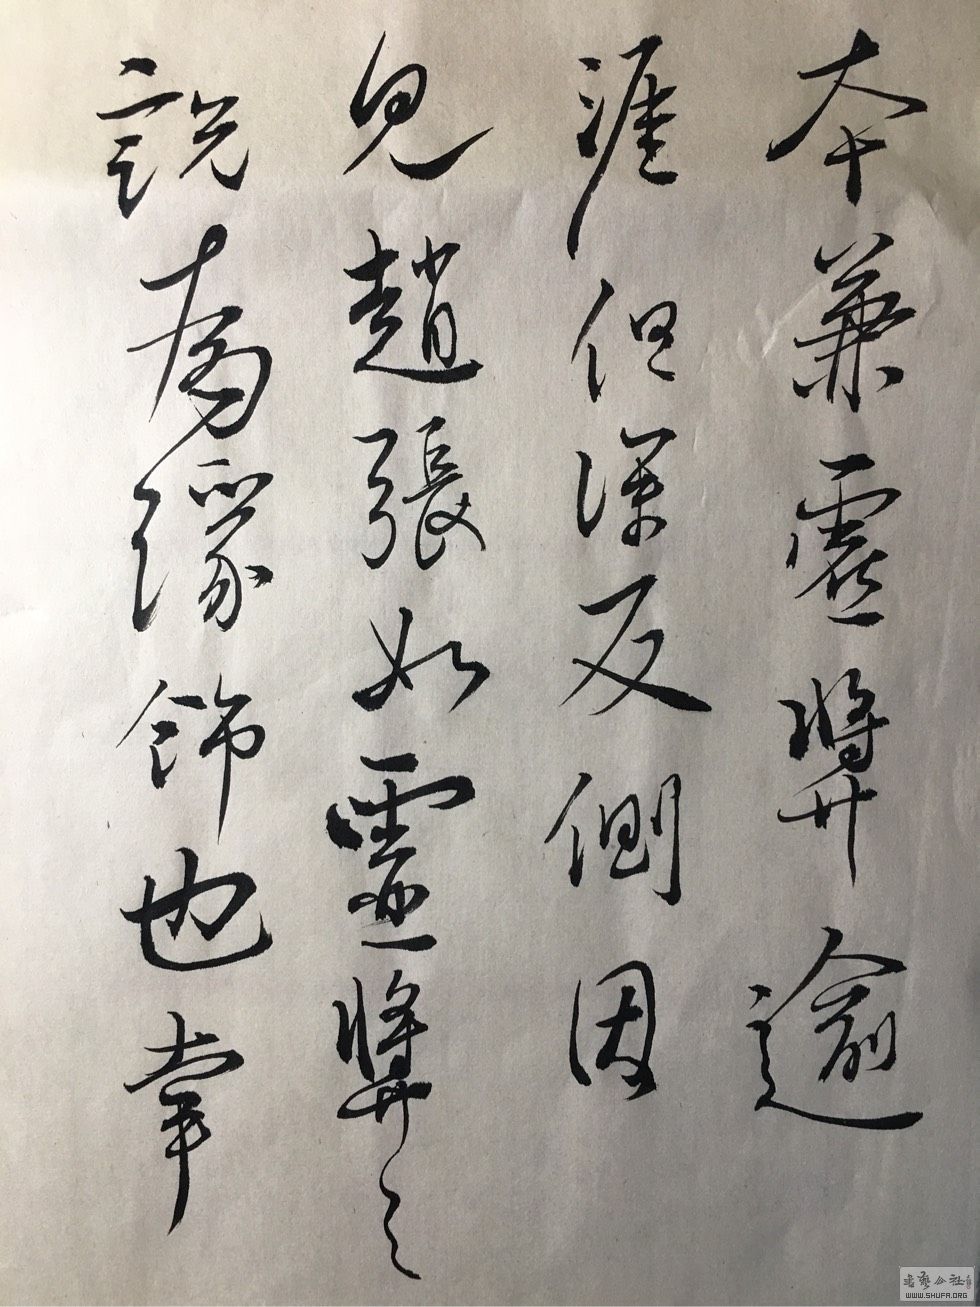 本兼虛獎逾
涯但深反側因
見趙張如虛獎之
說為緣飾也幸
書藝公社
WWW.SHUFA.ORG